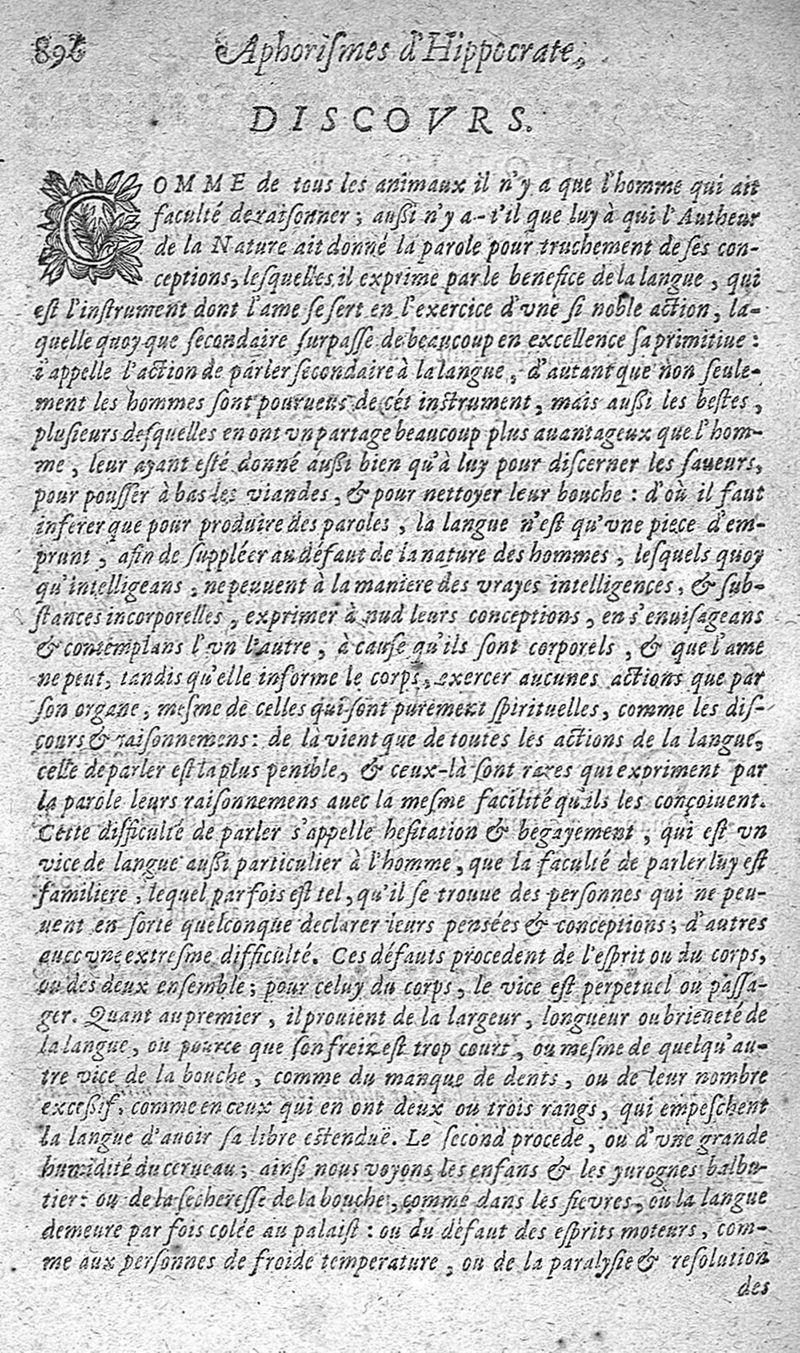 Aphoriſmes d'Hippocrate,
DISCOVRS.
COMME de tous les animaux il n'y a que l'homme qui ait
faculté de raiſonner ; auſſi n'y a-t'il que luy à qui l'Autheur
de la Nature ait donné la parole pour truchement de ſes con-
ceptions, leſquelles il exprime par le benefice de la langue, qui
eſt l'inſtrument dont l'ame ſe ſert en l'exercice d'vne ſi noble action, la-
quelle quoy que ſecondaire ſurpaſſe de beaucoup en excellence ſa primitiue :
i'appelle l'action de parler ſecondaire à la langue, d'autant que non ſeule-
ment les hommes ſont pourueus de cét inſtrument, mais auſſi les beſtes,
pluſieurs deſquelles en ont vn partage beaucoup plus auantageux que l'hom-
me, leur ayant eſté donné auſſi bien qu'à luy pour diſcerner les ſaueurs,
pour pouſſer à bas les viandes, & pour nettoyer leur bouche : d'où il faut
inferer que pour produire des paroles, la langue n'eſt qu'vne piece d'em-
prunt, afin de ſuppléer au défaut de la nature des hommes, leſquels quoy
qu'intelligeans, ne peuuent à la maniere des vrayes intelligences, & ſub-
ſtances incorporelles, exprimer à nud leurs conceptions, en s'enuiſageans
& contemplans l'vn l'autre, à cauſe qu'ils ſont corporels, & que l'ame
ne peut, tandis qu'elle informe le corps, exercer aucunes actions que par
ſon organe, meſme de celles qui ſont purement ſpirituelles, comme les diſ-
cours & raiſonnemens : de là vient que de toutes les actions de la langue,
celle de parler eſt la plus penible, & ceux-là ſont rares qui expriment par
la parole leurs raiſonnemens auec la meſme facilité qu'ils les conçoiuent.
Cette difficulté de parler s'appelle heſitation & begayement, qui eſt vn
vice de langue auſſi particulier à l'homme, que la faculté de parler luy eſt
familiere, lequel par fois eſt tel, qu'il ſe trouue des perſonnes qui ne peu-
uent en ſorte quelconque declarer leurs penſées & conceptions ; d'autres
auec vne extreſme difficulté. Ces défauts procedent de l'eſprit ou du corps,
ou des deux enſemble ; pour celuy du corps, le vice eſt perpetuel ou paſſa-
ger. Quant au premier, il prouient de la largeur, longueur ou brieueté de
la langue, ou pource que ſon frein eſt trop court, ou meſme de quelqu'au-
tre vice de la bouche, comme du manque de dents, ou de leur nombre
exceſſif, comme en ceux qui en ont deux ou trois rangs, qui empeſchent
la langue d'auoir ſa libre eſtenduë. Le ſecond procede, ou d'vne grande
humidité du cerueau ; ainſi nous voyons les enfans & les yurognes balbu-
tier : ou de la ſechereſſe de la bouche, comme dans les fievres, où la langue
demeure par fois colée au palaiſt : ou du défaut des eſprits moteurs, com-
me aux perſonnes de froide temperature, ou de la paralyſie & reſolution
des